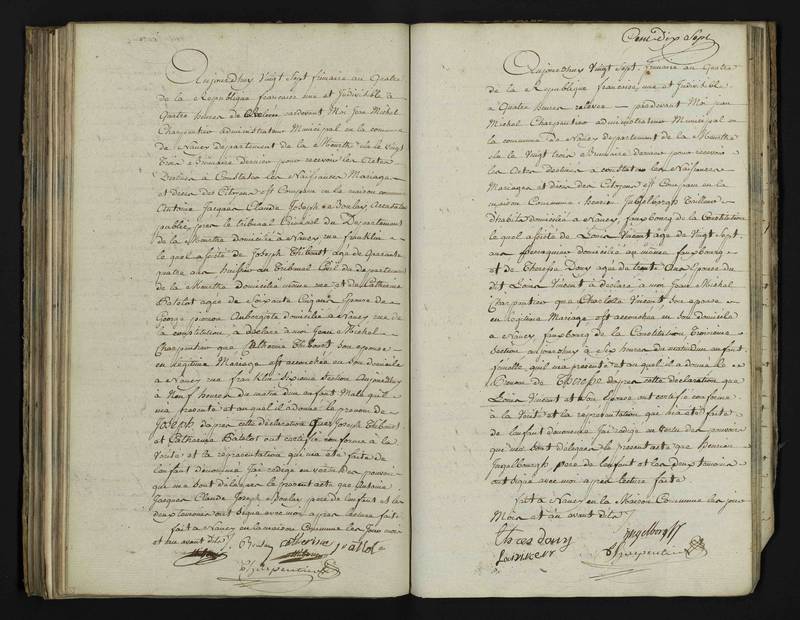 Aujourdhuy vingt Sept frimaire an Quatre
de la Republique francaise une et Indivisible à
Quatre heures de relevée pardevant Moi Jean Michel
Charpentier administrateur Municipal en la commune
de Nancy departement de la Meurthe elu le vingt
Trois Brumaire dernier pour recevoir les Actes
Destinés à Constater les Naissances Mariages
et décès des Citoyens est Comparu en la maison commune
Antoine Jacques Claude Joseph Boulay Accusateur
public près le tribunal Criminel du Departement
de la Meurthe domicilié à Nancy rue franklin
le quel assisté de Joseph Thibout agé de Quarante
quatre ans huissier au Tribunal du departement
de la Meurthe domicilié même rue et de Catherine
Batelot agée de Soixante Cinq ans Epouse de
George pierson Aubergiste domicilié à Nancy rue de
la Constitution, a déclaré à moi Jean Michel
Charpentier que Thibout son epouse
en légitime Mariage est accouchée en son domicile
à Nancy rue franklin Sixieme Section Aujourdhuy
à Neuf heures du matin d'un Enfant Male qu'il
m'a présenté et auquel il a donné le prenom de
Joseph d'après cette déclaration que Joseph Thibout
et Catherine Batelot ont certifié conforme à la
Verité et la représentation qui m'a été faite de
l'enfant dénommé J'ai rédigé en vertu des pouvoirs
qui me sont délégués le présent acte que Antoine
Jacques Claude Joseph Boulay pere de l'enfant et les
deux temoins ont signé avec moi après lecture faite
fait à Nancy en la maison Commune les Jour mois
et an avant dits
Boulay Catherine
Charpentier
Cent Dix Sept
Aujourdhuy Vingt Sept frimaire an Quatre
de la Republique francaise une et Indivisible
à Quatre heures relevée pardevant Moi Jean
Michel Charpentier administrateur Municipal en
la commune de Nancy departement de la Meurthe
elu le Vingt trois Brumaire dernier pour recevoir
les Actes destinés à constater les Naissances
Mariages et décès des Citoyens est Comparu en la
maison Commune henri Jngelbourgh Tailleur
d'habits domicilié à Nancy, fauxbourg de la Constitution
le quel assisté de Louis Vincent agé de Vingt Sept
ans Perruquier domicilié au même fauxbourg
et de Therese Dony agée de trente Ans Epouse du
dit Louis Vincent à déclaré à moi Jean Michel
Charpentier que Charlotte Vincent Son epouse
en légitime Mariage est accouchée en Son domicile
à Nancy fauxbourg de la Constitution Troisieme
Section aujourdhuy à Six heures du matin d'un enfant
femelle qu'il m'a présenté et auquel il a donné le
Prenom de Therese d'après cette déclaration que
Louis Vincent et Son Epouse ont certifié conforme
à la Verité et la représentation qui m'a été faite
de l'enfant dénommé J'ai rédigé en vertu des pouvoirs
qui me sont délégués le présent acte que henri
Jngelbourgh pere de l'enfant et les deux temoins
ont signé avec moi après lecture faite
fait à Nancy en la Maison Commune les jour
Mois et an avant dits
therese dony
Charpentier